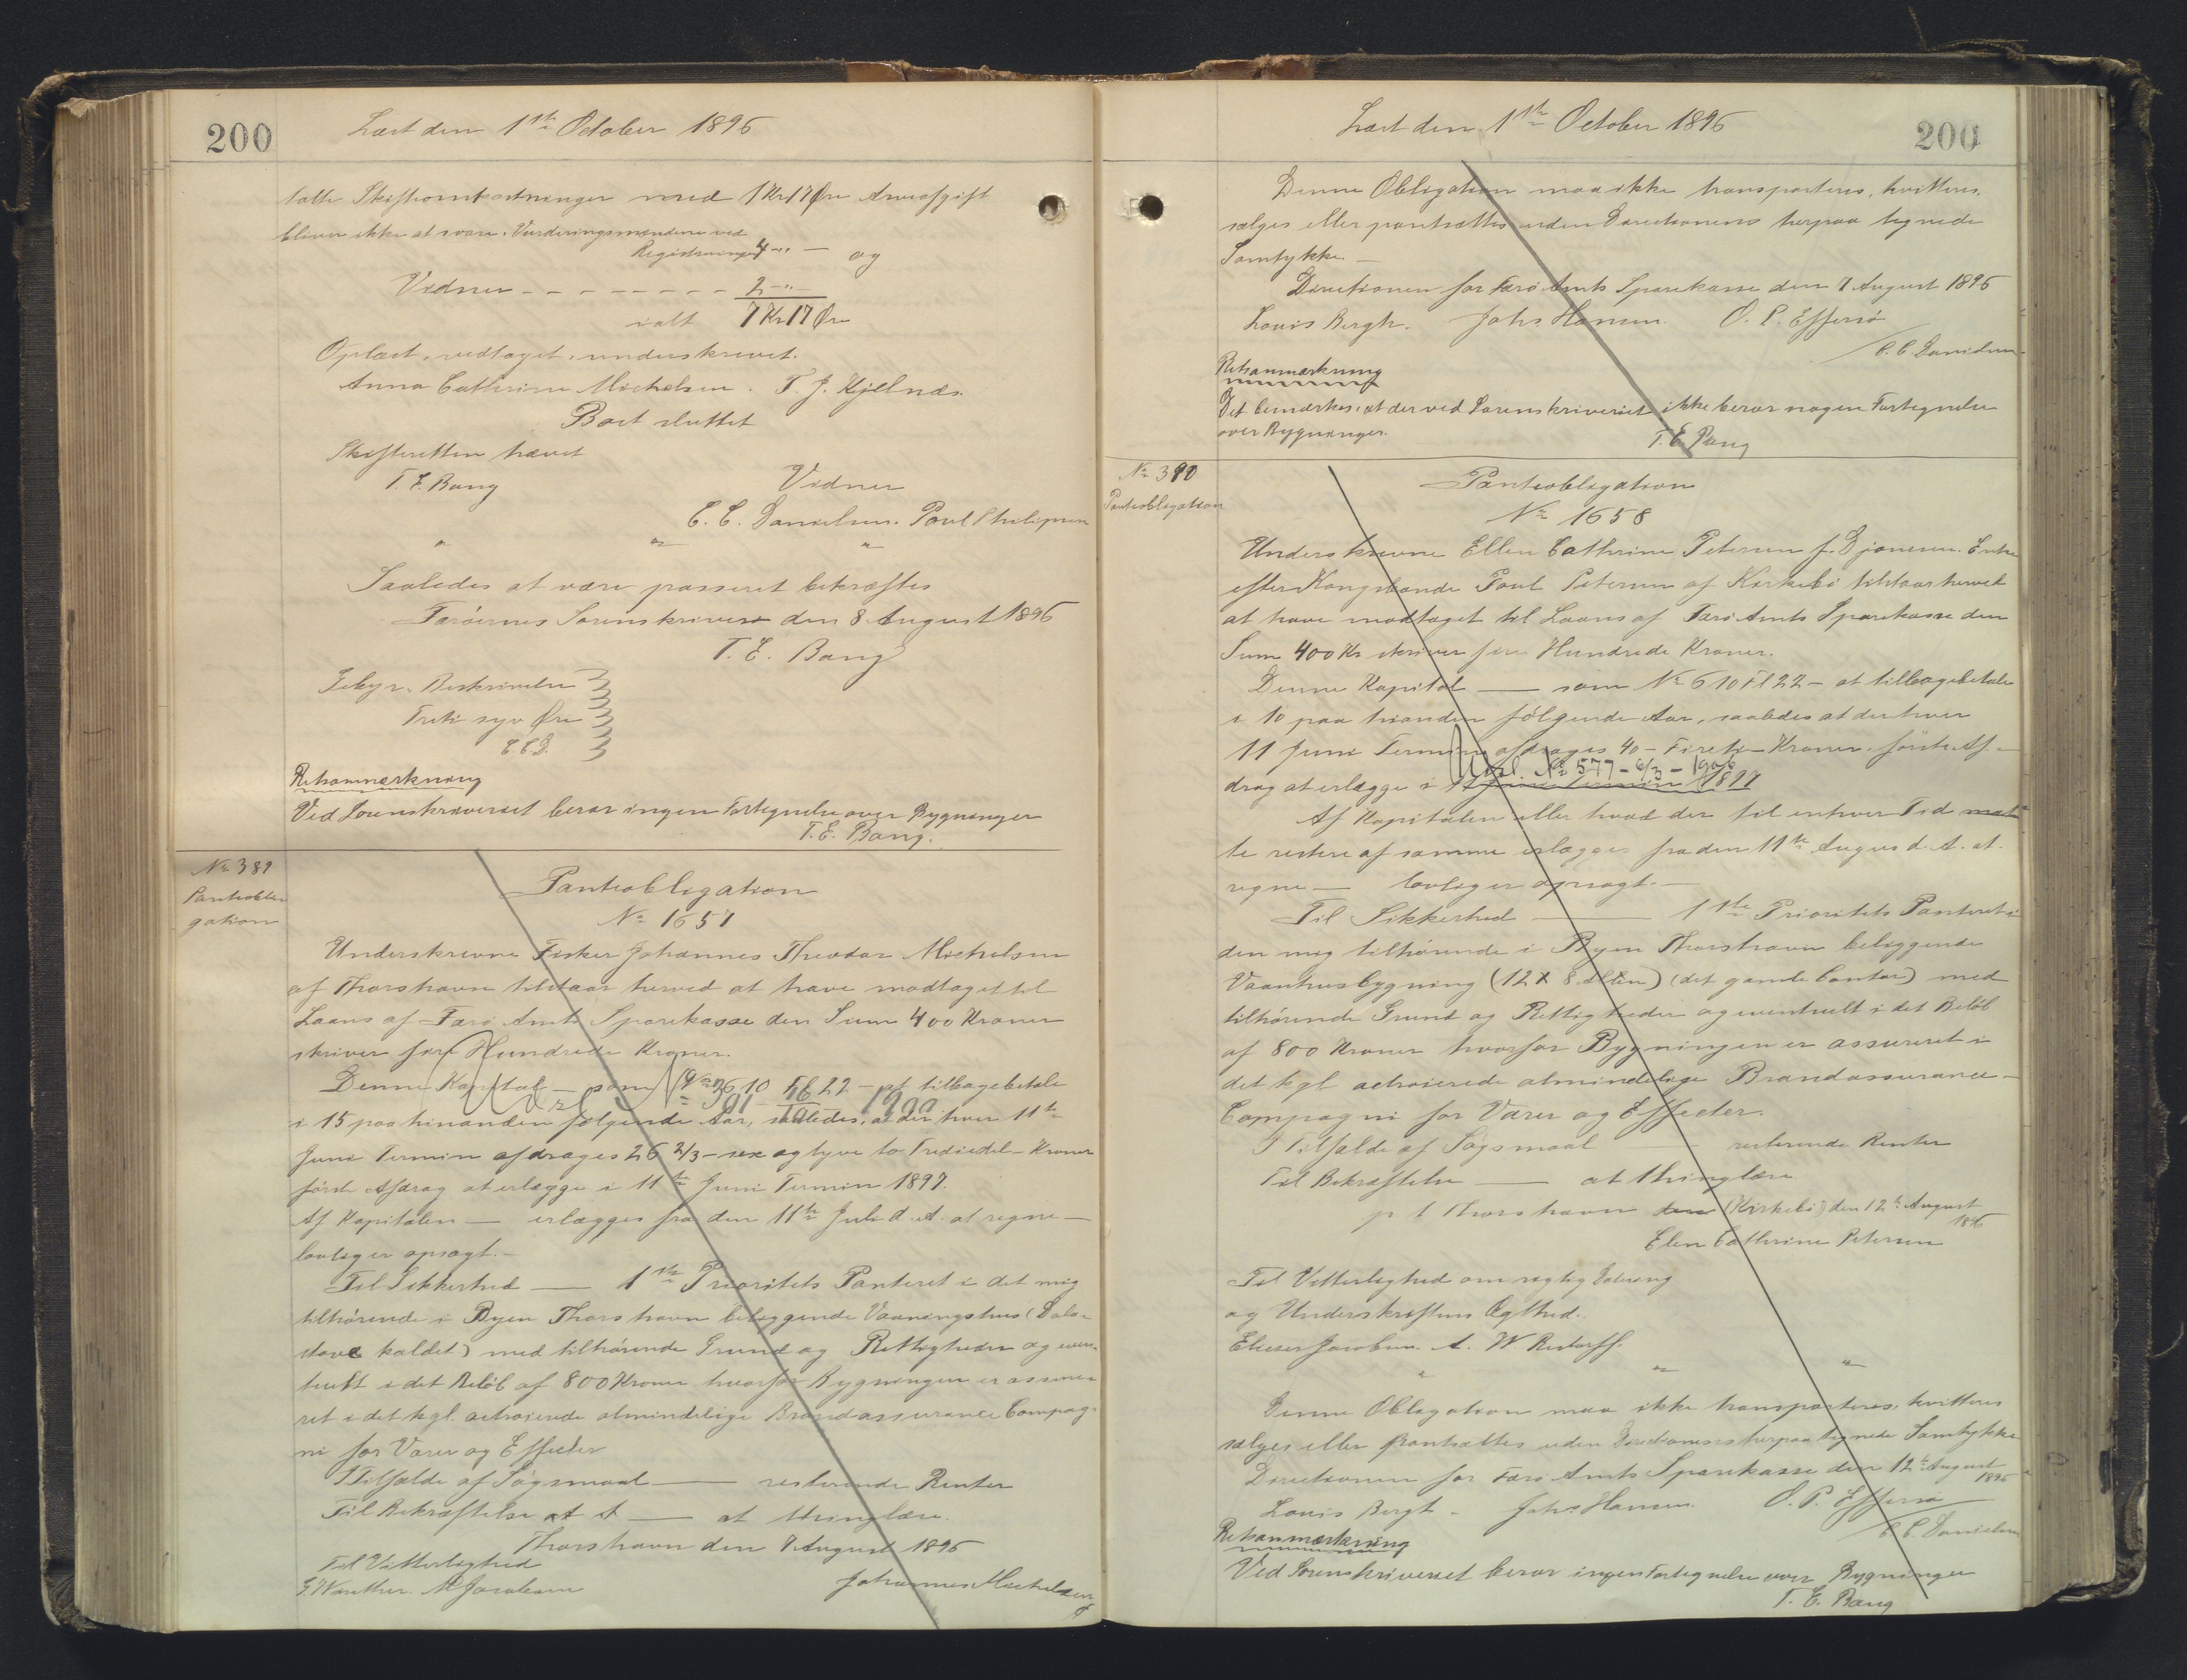 200
Læst den 1ste October 1896
talte Skifteomkostninger med 1 Kr 17 Øre Arveafgift
bliver ikke at svare. Vurderingsmændene ved
Registreringen 4 " — og
Vidner - - - - - - - - 2 - " -
ialt 7 Kr 17 Øre
Oplæst, vedtaget, underskrevet.
Anna Cathrine Michelsen. T J. Kjelnæs.
Boet sluttet
Skifteretten hævet
T. E. Bang
Vidner
C. C. Danielsen. Poul Philipsen
" " "
Saaledes at være passeret bekræftes
Færöernes Sorenskriveri den 8 August 1896
T. E. Bang
Gebyr. Beskrivelse
Treti syv Øre
C.C.D.
Retsanmærkning
Ved Sorenskriveriet beror ingen Fortegnelse over Bygninger
T. E. Bang.
No 389
Panteobli
gation
Panteobligation
No 1657
Underskrevne Fisker Johannes Theodor Michelsen
af Thorshavn tilstaar herved at have modtaget til
Laans af Færö Amts Sparekasse den Sum 400 Kroner
skriver fire Hundrede Kroner.
Denne Kapital — som No 610 Fl 22 — at tilbagebetale
Udsl. No 301
1900
i 15 paa hinanden følgende Aar, saaledes, at der hver 11te
Juni Termin afdrages 26 2/3 — sex og tyve to Trediedel — Kroner
förste Afdrag at erlægge i 11te Juni Termin 1897.
Af Kapitalen — erlægges fra den 11te Juli d. A. at regne —
lovlig er opsagt. —
Til Sikkerhed — 1ste Prioritets Panteret i det mig
tilhörende i Byen Thorshavn beliggende Vaaningshus (Dals-
stove kaldet) med tilhörende Grund og Rettigheder og even-
tuelt i det Belöb af 800 Kroner hvorfor Bygningen er assure-
ret i det kgl. octroierede almindelige Brandassurance Compag-
ni for Varer og Effecter
I Tilfælde af Sögsmaal — resterende Renter
Til Bekræftelse at — at thinglæse.
Thorshavn den 7 August 1896
Til Vitterlighed
M Jacobsen
Johannes Michelsen
200
Læst den 1ste October 1896
Denne Obligation maa ikke transporteres, kvitteres,
sælges eller pantsættes uden Directionens herpaa tegnede
Samtykke. —
Directionen for Færö Amts Sparekasse den 7 August 1896
Louis Bergh. Johs Hansen. O. P. Effersö
/C. C. Danielsen
Retsanmærkning
Det bemærkes, at der ved Sorenskriveriet ikke beror nogen Fortegnelse
over Bygninger.
T. E. Bang
No 390
Panteobligation
Panteobligation
No 1658
Underskrevne Ellen Cathrine Petersen f. Djonesen. Enke
efter Kongsbonde Poul Petersen af Kirkebö tilstaar herved
at have modtaget til Laans af Færö Amts Sparekasse den
Sum 400 Kr skriver fire Hundrede Kroner.
Denne Kapital — som No 610 Fl 22 — at tilbagebetale
i 10 paa hinanden fölgende Aar, saaledes at der hver
11 Juni Termin afdrages 40 — Fireti — Kroner. förste Af-
Udsl. No 577 - 6/3 - 1906
drag at erlægge i 11 Juni Termin 1897
Af Kapitalen eller hvad der til enhver Tid maat-
te restere af samme erlægges fra den 11te August d. A. at
regne — lovlig er opsagt. —
Til Sikkerhed — 1ste Prioritets Panteret i
den mig tilhörende i Byen Thorshavn beliggende
Vaanhusbygning (12 x 8 Alen) (det gamle Contor) med
tilhörende Grund og Rettigheder og eventuelt i det Belöb
af 800 Kroner hvorfor Bygningen er assureret i
det kgl octroierede almindelige Brandassurance-
Compagni for Varer og Effecter.
I Tilfælde af Sögsmaal — resterende Renter
Til Bekræftelse — at thinglæse
p t Thorshavn den (Kirkebö) den 12te August
1896
Elen Cathrine Petersen
Til Vitterlighed om rigtig Datering
og Underskriftens Ægthed.
Elieser Jacobsen. A. W Restorff.
" " "
Denne Obligation maa ikke transporteres, kvitteres
sælges eller pantsættes uden Directionens herpaa tegnede Samtykke
Directionen for Færö Amts Sparekasse den 12te August
1896
Louis Bergh - Johs Hansen. O. P. Effersö
/C. C. Danielsen
Retsanmærkning
Ved Sorenskriveriet beror ingen Fortegnelse over Bygninger
T. E. Bang